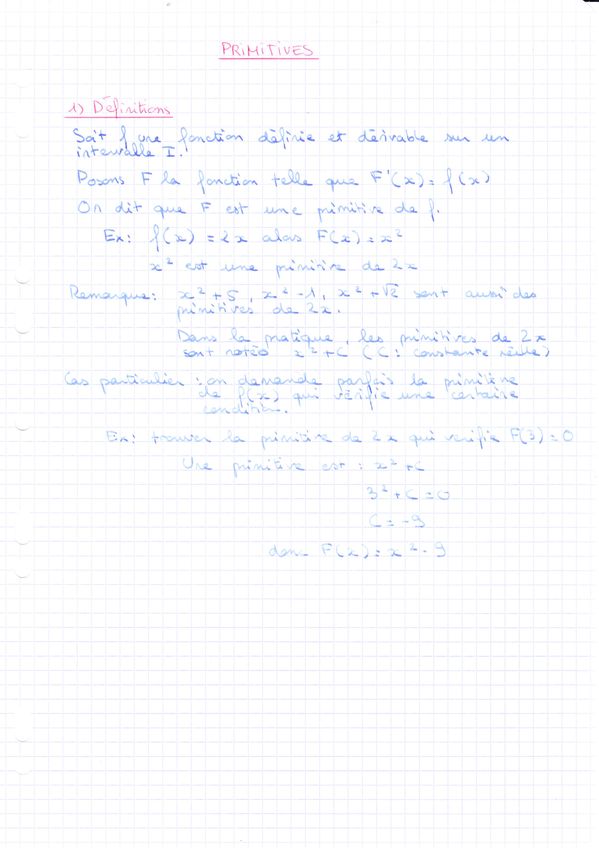 PRIMITIVES
1) Définitions
Soit f une fonction définie et dérivable sur un
intervalle I.
Posons F la fonction telle que F'(x) = f(x)
On dit que F est une primitive de f.
Ex: f(x) = 2x alors F(x) = x²
x² est une primitive de 2x
Remarque: x² + 5, x² - 1, x² + √2 sont aussi des
primitives de 2x.
Dans la pratique, les primitives de 2x
sont notées x² + C (C: constante réelle)
Cas particulier : on demande parfois la primitive
de f(x) qui vérifie une certaine
condition.
Ex: trouver la primitive de 2x qui vérifie F(3) = 0
Une primitive est : x² + C
3² + C = 0
C = -9
donc F(x) = x² - 9